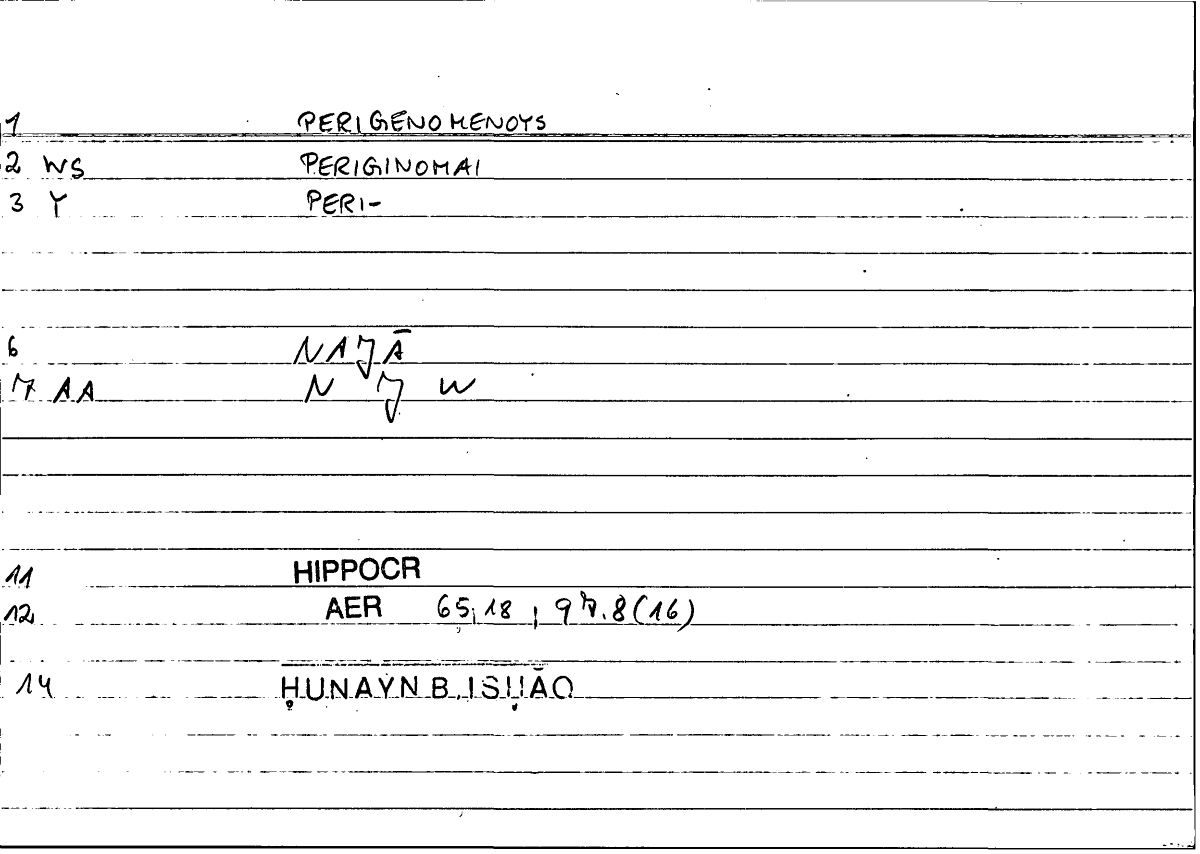 1 PERIGENOMENOYS
2 WS PERIGINOMAI
3 Y PERI-
6 NAJĀ
7 AA N J W
11 HIPPOCR
12 AER 65,18 , 97.8(16)
14 ḤUNAYN B. ISḤĀQ